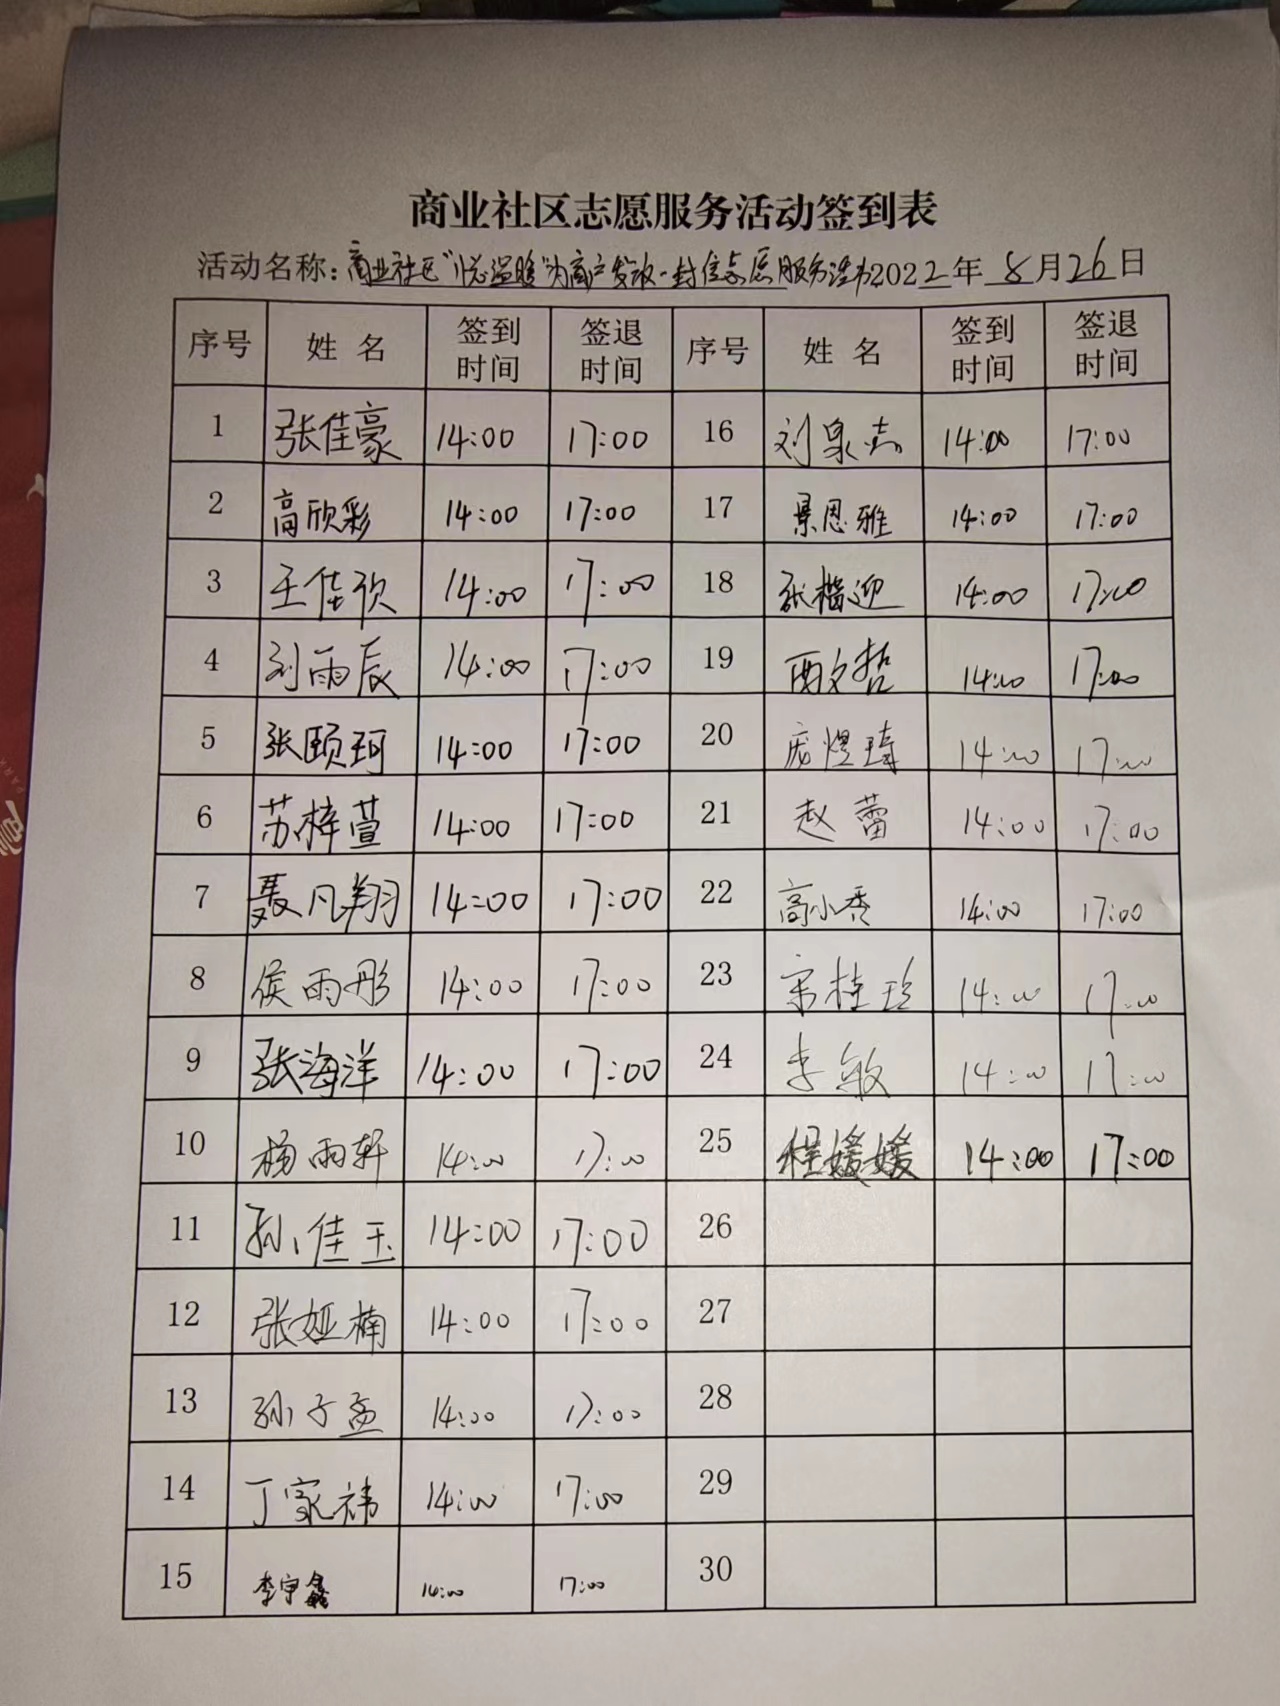 商业社区志愿服务活动签到表
活动名称:商业社区"忆温暖"为商户发放一封信志愿服务活动2022年 8月26日
序号 姓名 签到时间 签退时间 序号 姓名 签到时间 签退时间
1 张佳豪 14:00 17:00 16 刘泉志 14:00 17:00
2 高欣彩 14:00 17:00 17 景恩雅 14:00 17:00
3 王佳欣 14:00 17:00 18 张楷迎 14:00 17:00
4 刘雨辰 14:00 17:00 19 西文哲 14:00 17:00
5 张颐珂 14:00 17:00 20 庞煜琦 14:00 17:00
6 苏梓萱 14:00 17:00 21 赵蕾 14:00 17:00
7 聂凡翔 14:00 17:00 22 高小秀 14:00 17:00
8 侯雨彤 14:00 17:00 23 宋桂玲 14:00 17:00
9 张海洋 14:00 17:00 24 李敏 14:00 17:00
10 杨雨轩 14:00 17:00 25 程媛媛 14:00 17:00
11 孙佳玉 14:00 17:00 26
12 张娅楠 14:00 17:00 27
13 孙子孟 14:00 17:00 28
14 丁家祎 14:00 17:00 29
15 李宇鑫 14:00 17:00 30